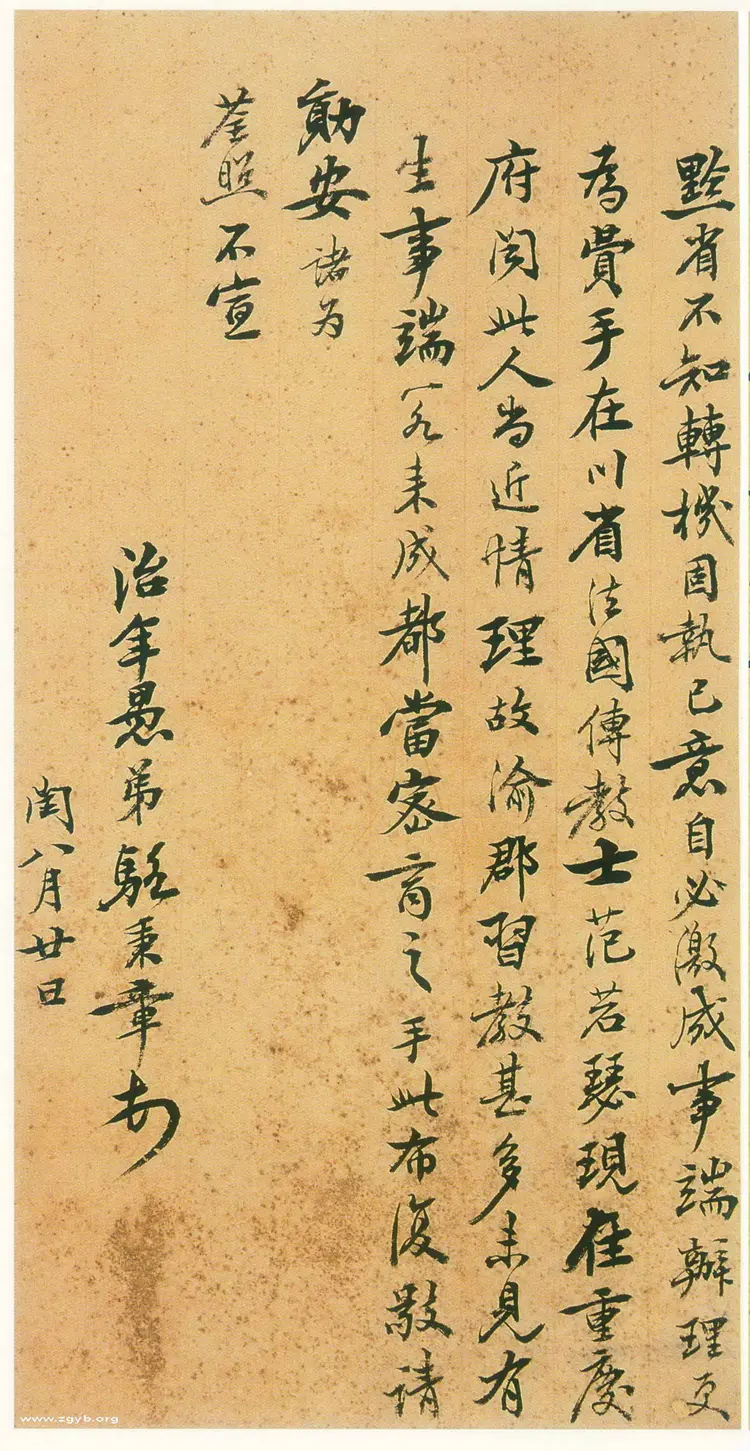 黔省不知轉機固執己意自必激成事端辦理更
為費手在川省法國傳教士范若瑟現住重慶
府聞此人尚近情理故渝郡習教甚多未見有
生事端若來成都當密商之手此布復敬請
勛安諸为
荃照不宣
治年愚弟駱秉章
閏八月廿日
www.zgyb.org